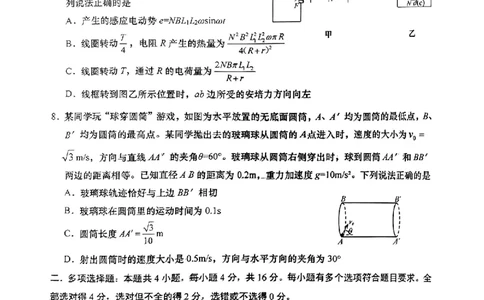 列说法正确的是
A．产生的感应电动势 e=NBL₁L₂ωsinωt
N'd(c)
甲 乙
B．线圈转动 T/4 ，电阻 R 产生的热量为 N²B²L₁²L₂²ωπR/4(R+r)²
C．线圈转动 T，通过 R 的电荷量为 2NBπL₁L₂/R+r
D．线框转到图乙所示位置时，ab 边所受的安培力方向向左
8．某同学玩“球穿圆筒”游戏，如图为水平放置的无底面圆筒，A、A′ 均为圆筒的最低点，B、
B′ 均为圆筒的最高点。某同学抛出去的玻璃球从圆筒的 A 点进入时，速度的大小为 v₀ =
√3 m/s，方向与直线 AA′ 的夹角θ=60°。玻璃球从圆筒右侧穿出时，球到圆筒 AA′ 和 BB′
两边的距离相等。已知直径 A B 的距离为 0.2m，重力加速度 g=10m/s²。下列说法正确的是
A．玻璃球轨迹恰好与上边 BB′ 相切
B．玻璃球在圆筒里的运动时间为 0.1s
C．圆筒长度 AA′= √3/10 m
D．射出圆筒时的速度大小是 0.5m/s，方向与水平方向的夹角为 30°
B B′
v₀
θ
A A′
二．多项选择题：本题共 4 小题，每小题 4 分，共 16 分。每小题有多个选项符合题目要求。全
部选对得 4 分，选对但不全的得 2 分，选错或不选得 0 分。